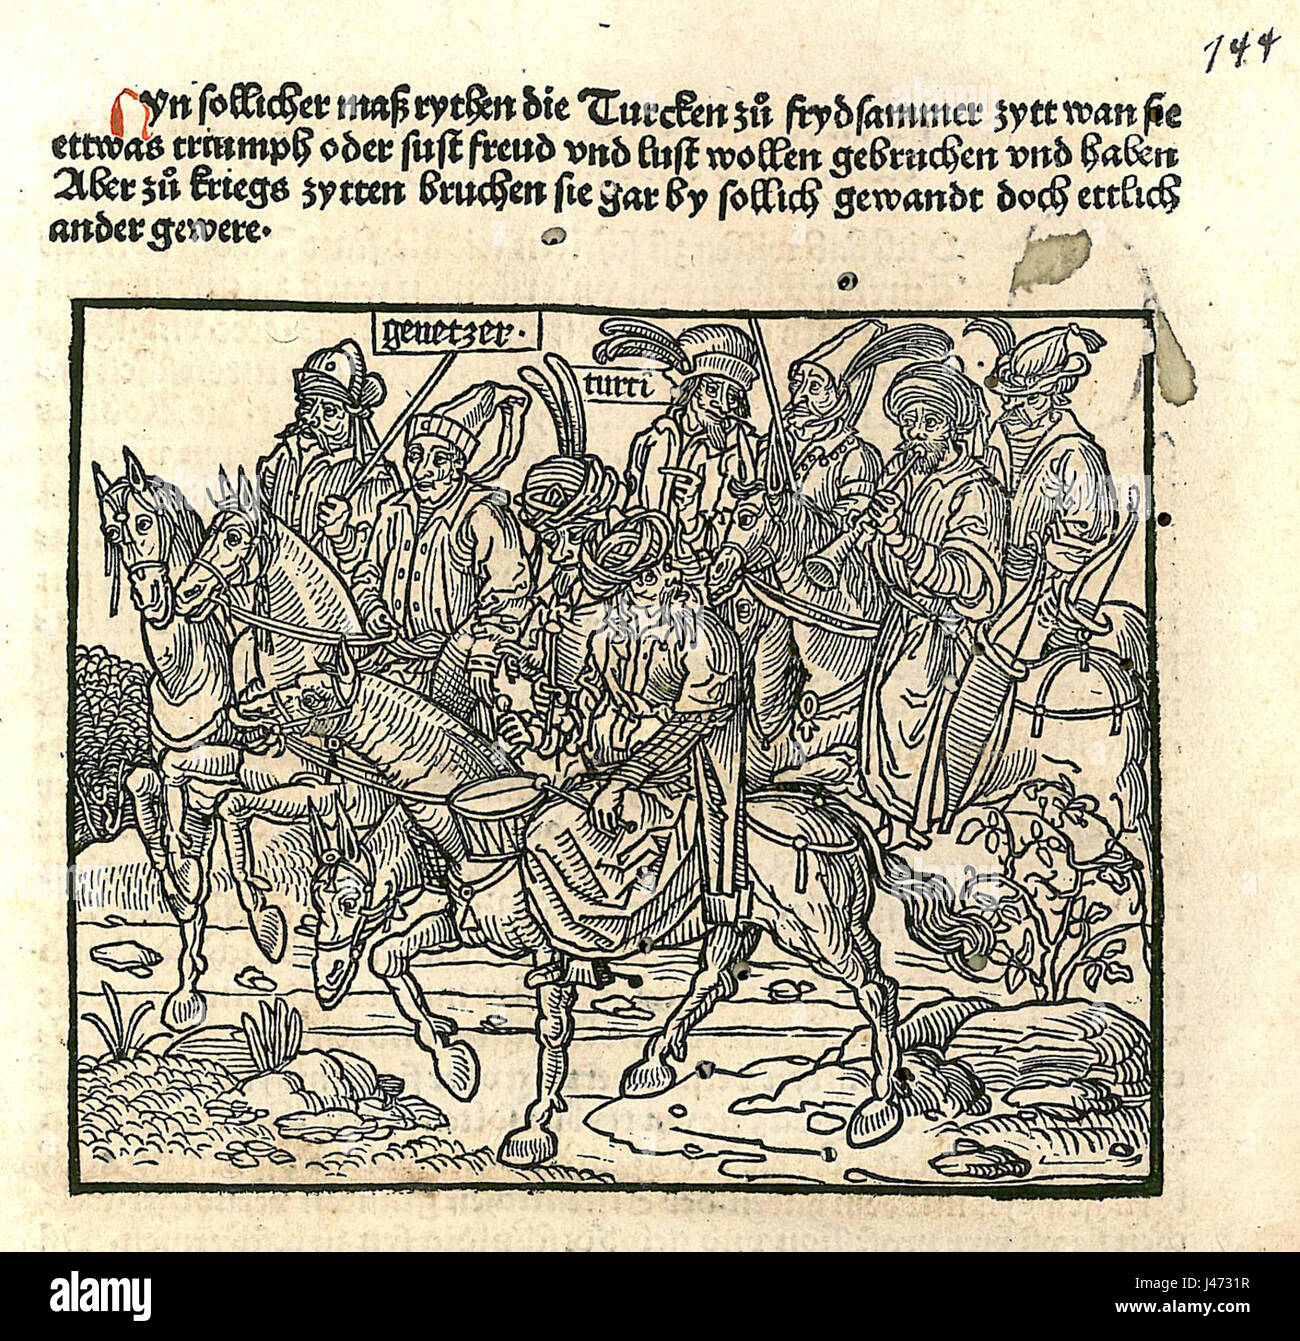 144
Yn sollicher maß rythen die Turcken zů frydsammer zytt wan sie
ettwas triumph oder sust freud vnd lust wollen gebruchen vnd haben
Aber zů kriegs zytten bruchen sie gar by sollich gewandt doch ettlich
ander gewere.
genetzer.
turci
alamy
Image ID: J4731R
www.alamy.com